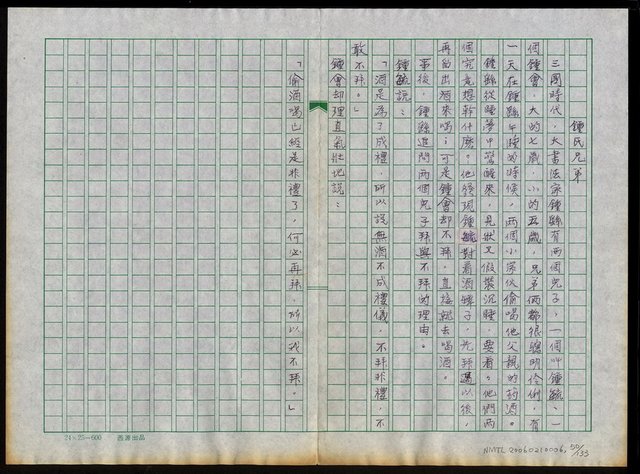 鍾氏兄弟
三國時代，大書法家鍾繇有兩個兒子，一個叫鍾毓、一
個鍾會，大的七歲，小的五歲，兄弟倆都很聰明伶俐，有
一天在鍾繇午睡的時候，兩個小家伙偷喝他父親的藥酒。
鍾繇從睡夢中驚醒來，見狀又假裝沉睡，要看他們兩
個究竟想幹什麼。他發現鍾毓對着酒罈子，先拜過以後，
再舀出酒來喝；可是鍾會却不拜，直接就去喝酒。
事後，鍾繇追問兩個兒子拜與不拜的理由。
鍾毓說：
「酒是為了成禮，所以說無酒不成禮儀，不拜非禮，不
敢不拜。」
鍾會却理直氣壯地說：
「偷酒喝已經是非禮了，何必再拜，所以我不拜。」
24×25=600 西源出品
NMTL 20060210006, 50/133